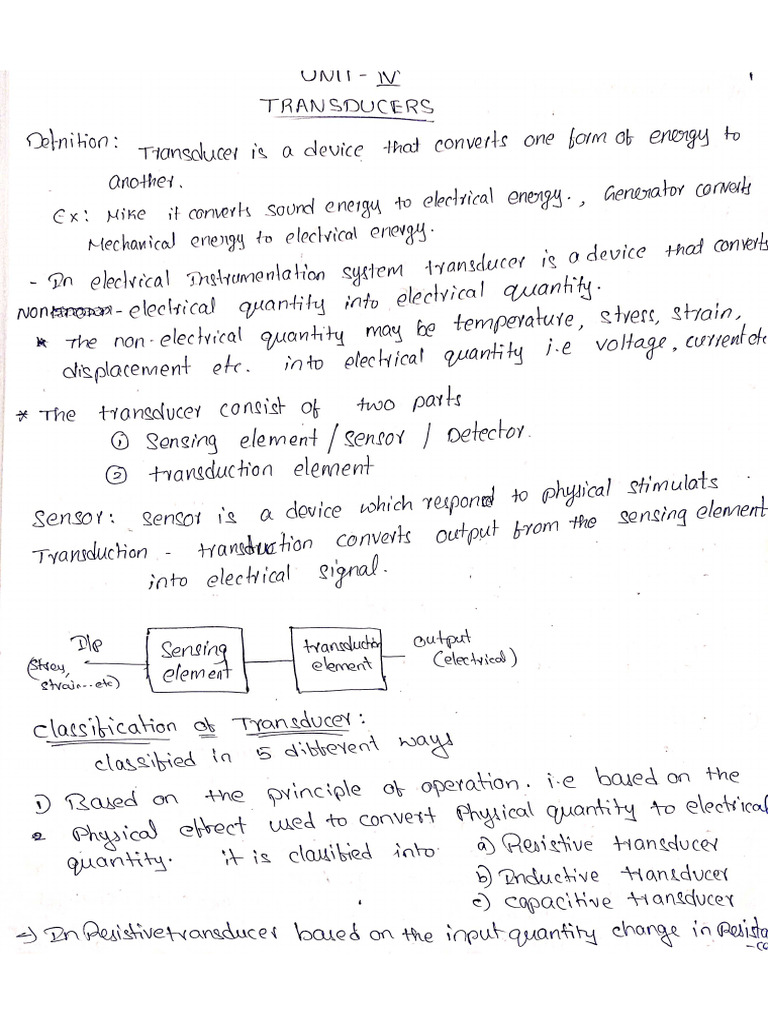 UNIT - IV
1
TRANSDUCERS
Defnition: Transducer is a device that converts one form of energy to
another.
Ex: Mike it converts sound energy to electrical energy., Generator converts
Mechanical energy to electrical energy.
- In electrical Instrumentation system transducer is a device that converts
Non - electrical quantity into electrical quantity.
* The non-electrical quantity may be temperature, stress, strain,
displacement etc. into electrical quantity i.e voltage, current etc
* The transducer consist of two parts
① Sensing element / sensor / Detector.
② transduction element
Sensor: Sensor is a device which respond to physical stimulats
Transduction - transduction converts output from the sensing element
into electrical signal.
I/p
(Strey,
strain...etc)
Sensing
element
transduction
element
output
(electrical)
Classification of Transducer:
classified in 5 different ways
1) Based on the principle of operation. i.e based on the
2 Physical effect used to convert Physical quantity to electrical
quantity. it is classified into a) Resistive transducer
b) Inductive transducer
c) capacitive transducer
→) In Resistive transducer based on the input quantity change in Resista